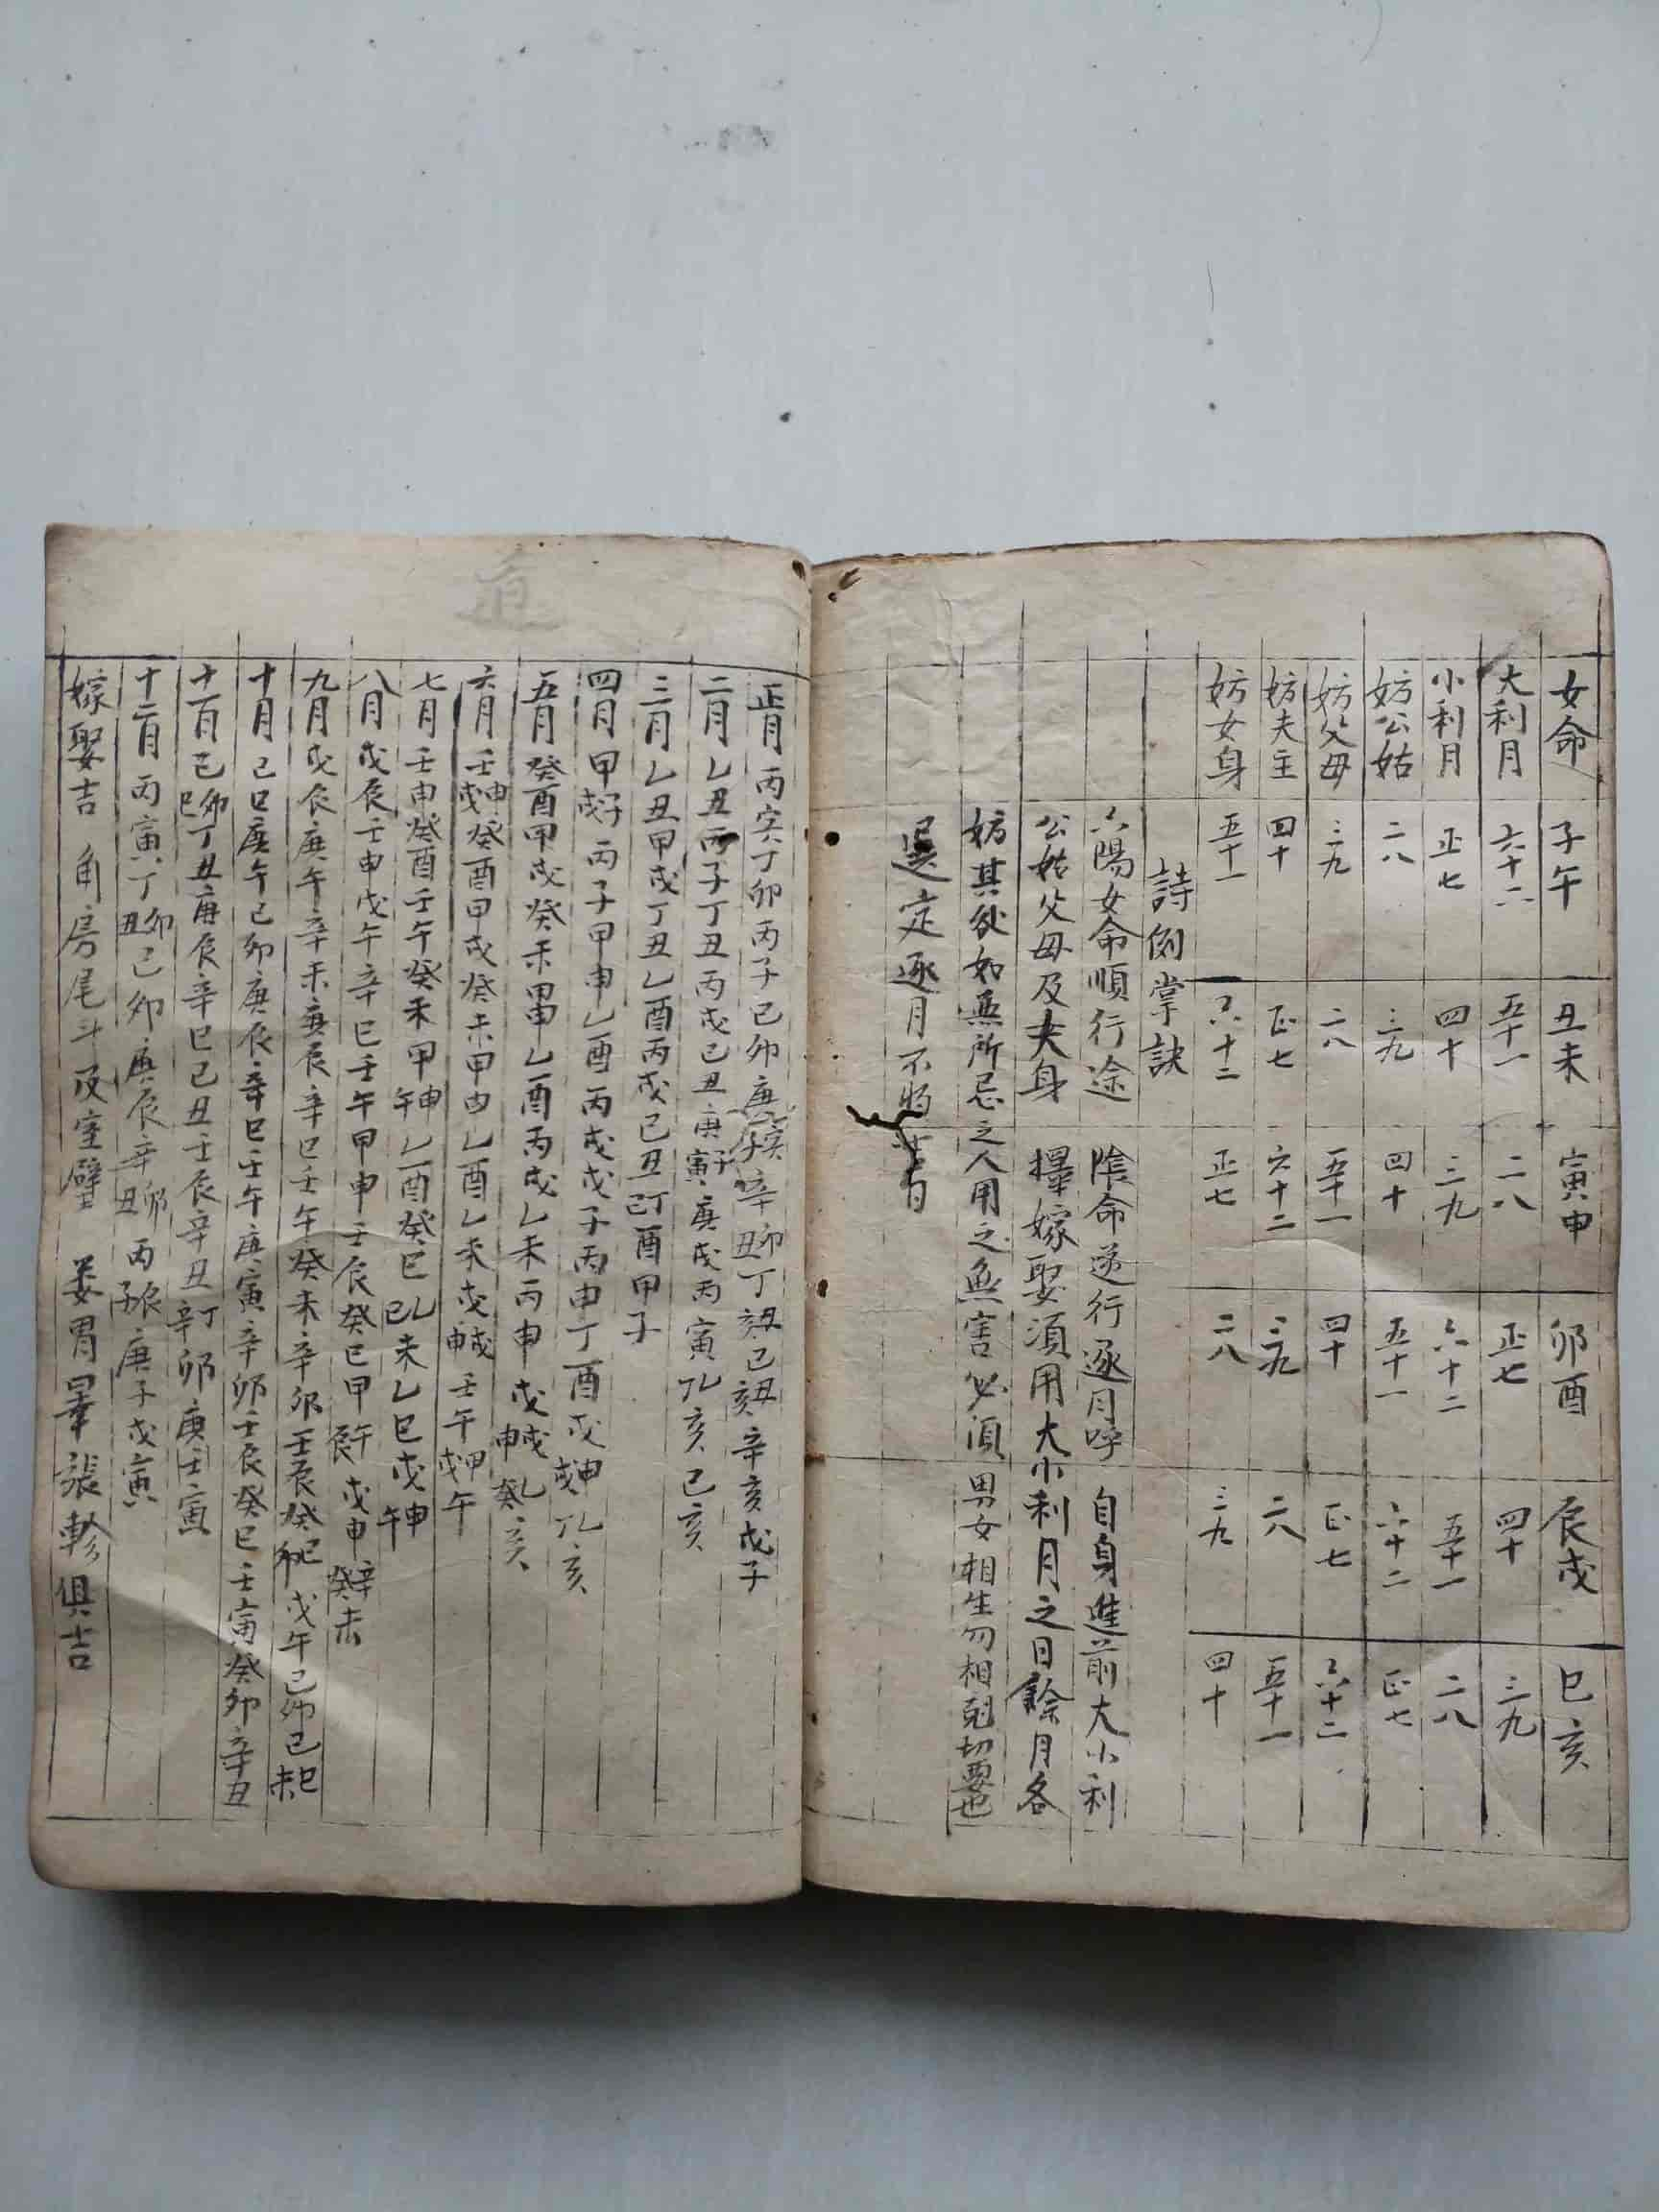 女命 子午 丑未 寅申 卯酉 辰戌 巳亥
大利月 六十二 五十一 二八 正七 四十 三九
小利月 正七 四十 三九 六十二 五十一 二八
妨公姑 二八 三九 四十 五十一 六十二 正七
妨父母 三九 二八 五十一 四十 正七 六十二
妨夫主 四十 正七 六十二 三九 二八 五十一
妨女身 五十一 六十二 正七 二八 三九 四十
詩例掌訣
六陽女命順行途 陰命逆行逐月呼 自身進前大小利
公姑父母及夫身 擇嫁娶須用大小利月之日餘月各
妨其處如無所忌之人用之無害必須男女相生勿相剋切要也
選定逐月不將吉日
正月 丙寅丁卯丙子己卯庚寅子辛卯丑丁丑亥己丑亥辛亥戊子
二月 乙丑丙子丁丑丙戌己丑庚子寅庚戌丙寅乙亥己亥
三月 乙丑甲戌丁丑乙酉丙戌己丑己丁酉甲子
四月 甲子戌丙子甲申乙酉丙戌戊子丙申丁酉戊申戌乙亥
五月 癸酉甲戌癸未甲申乙酉丙戌乙未丙申戊戌申乙癸亥
六月 壬申戌癸酉甲戌癸未甲申乙酉乙未戊戌申壬午甲戌午
七月 壬申癸酉壬午癸未甲申午乙酉癸巳乙己未乙巳戊申午
八月 戊辰壬申戊午辛巳壬午甲申壬辰癸巳甲午辰戊申辛癸未
九月 戊辰庚午辛未庚辰辛巳壬午癸未辛卯壬辰癸巳卯戊午己卯己巳未
十月 己巳庚午己卯庚辰辛巳壬午庚寅辛卯壬辰癸巳壬寅癸卯辛丑
十一月 己卯巳丁丑庚辰辛巳己丑壬辰辛丑丁辛卯庚壬寅
十二月 丙寅丁卯丑己卯庚辰辛卯丑丙辰子庚子戊寅
嫁娶吉 角房尾斗及室壁 婁胃畢張軫俱吉